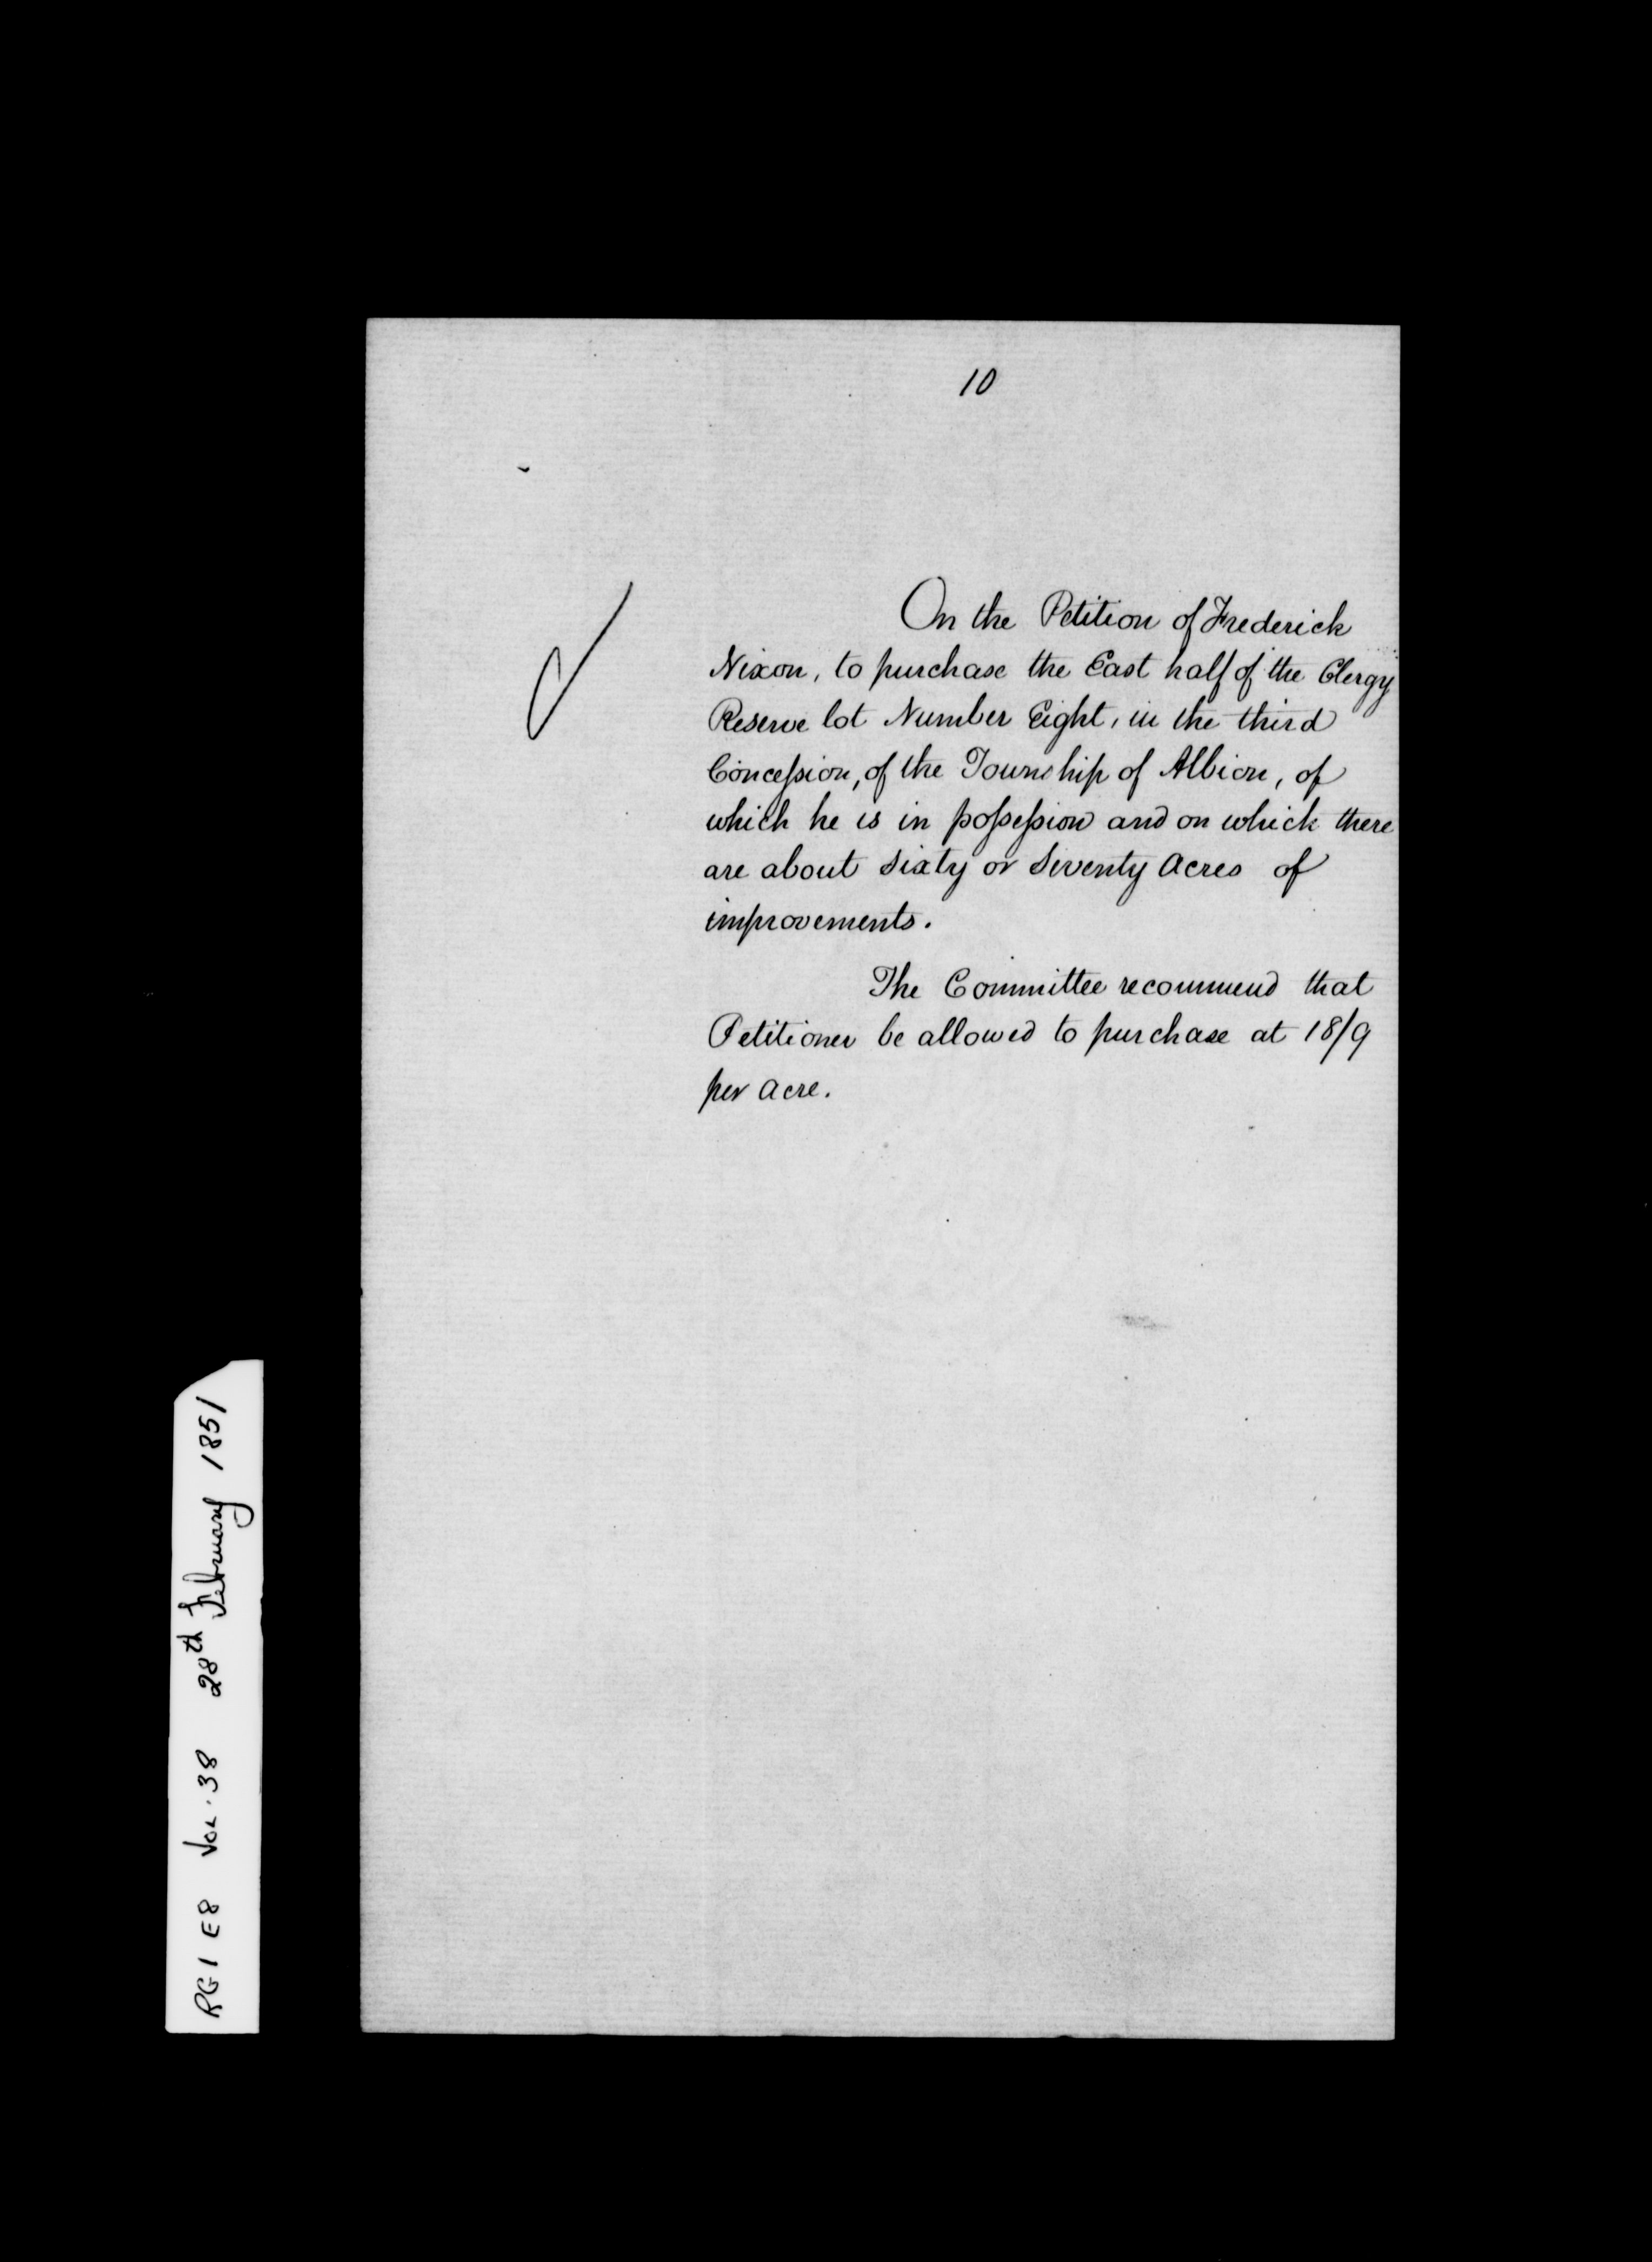 10
On the Petition of Frederick
Nixon, to purchase the East half of the Clergy
Reserve lot Number Eight, in the third
Concession, of the Township of Albion, of
which he is in possession and on which there
are about sixty or seventy acres of
improvements.
The Committee recommend that
Petitioner be allowed to purchase at 18/9
per acre.
RG1 E8 VOL. 38 28th February 1851